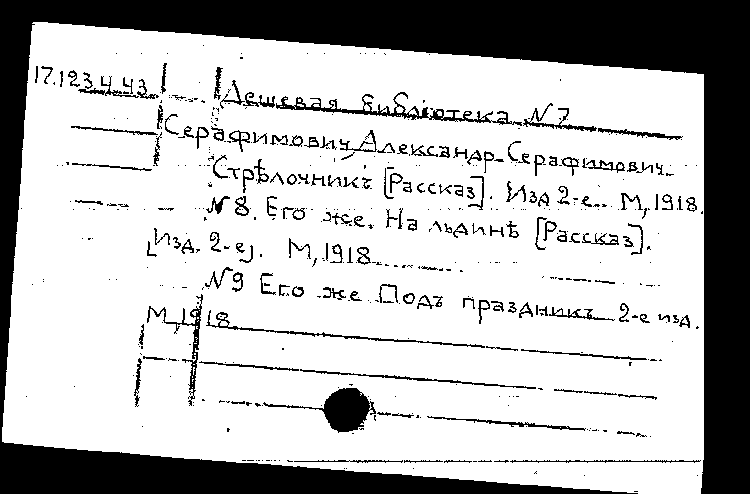 17.123.4.43. Дешевая библіотека N 7
Серафимович, Александр Серафимович.
Стрѣлочникъ [Рассказ]. Изд 2-е. М, 1918.
N 8. Его же. На льдинѣ [Рассказ].
[Изд. 2-е]. М, 1918
N 9 Его же Подъ праздникъ 2-е изд.
М, 1918.